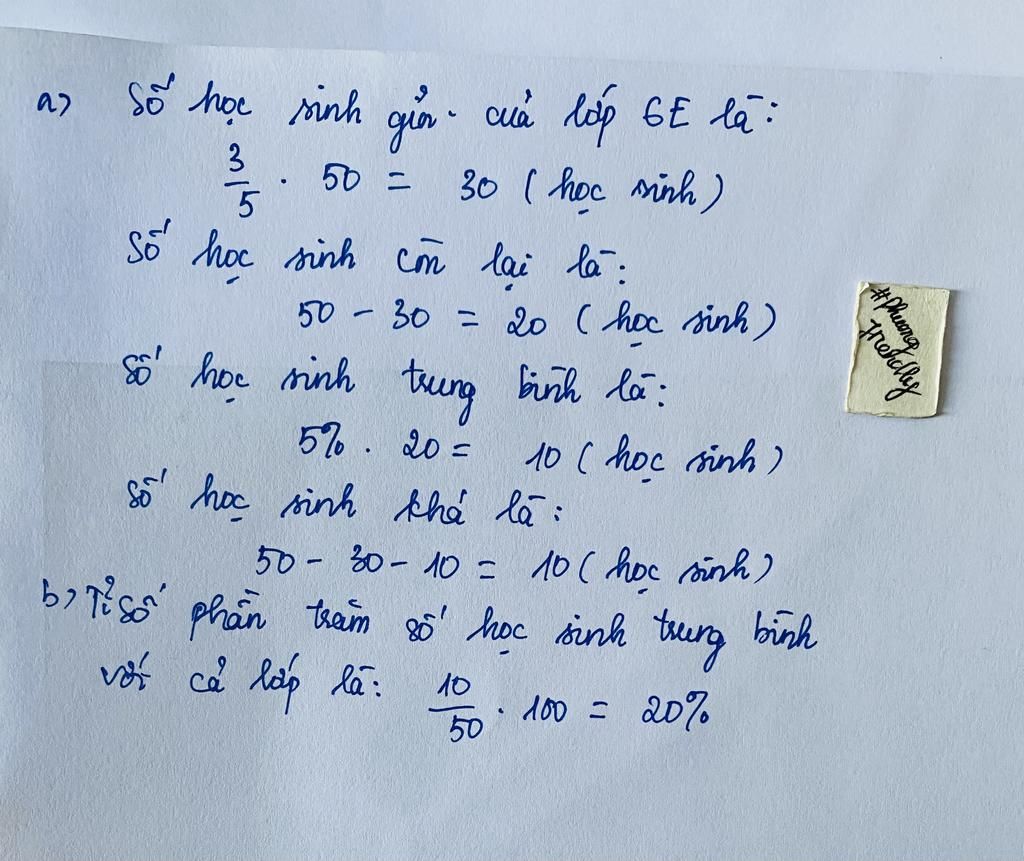 a) Số học sinh giỏi của lớp 6E là:
3/5 . 50 = 30 (học sinh)
Số học sinh còn lại là:
50 - 30 = 20 (học sinh)
Số học sinh trung bình là:
5% . 20 = 10 (học sinh)
Số học sinh khá là:
50 - 30 - 10 = 10 (học sinh)
b) Tỉ số phần trăm số học sinh trung bình
với cả lớp là: 10/50 . 100 = 20%
#Phuong